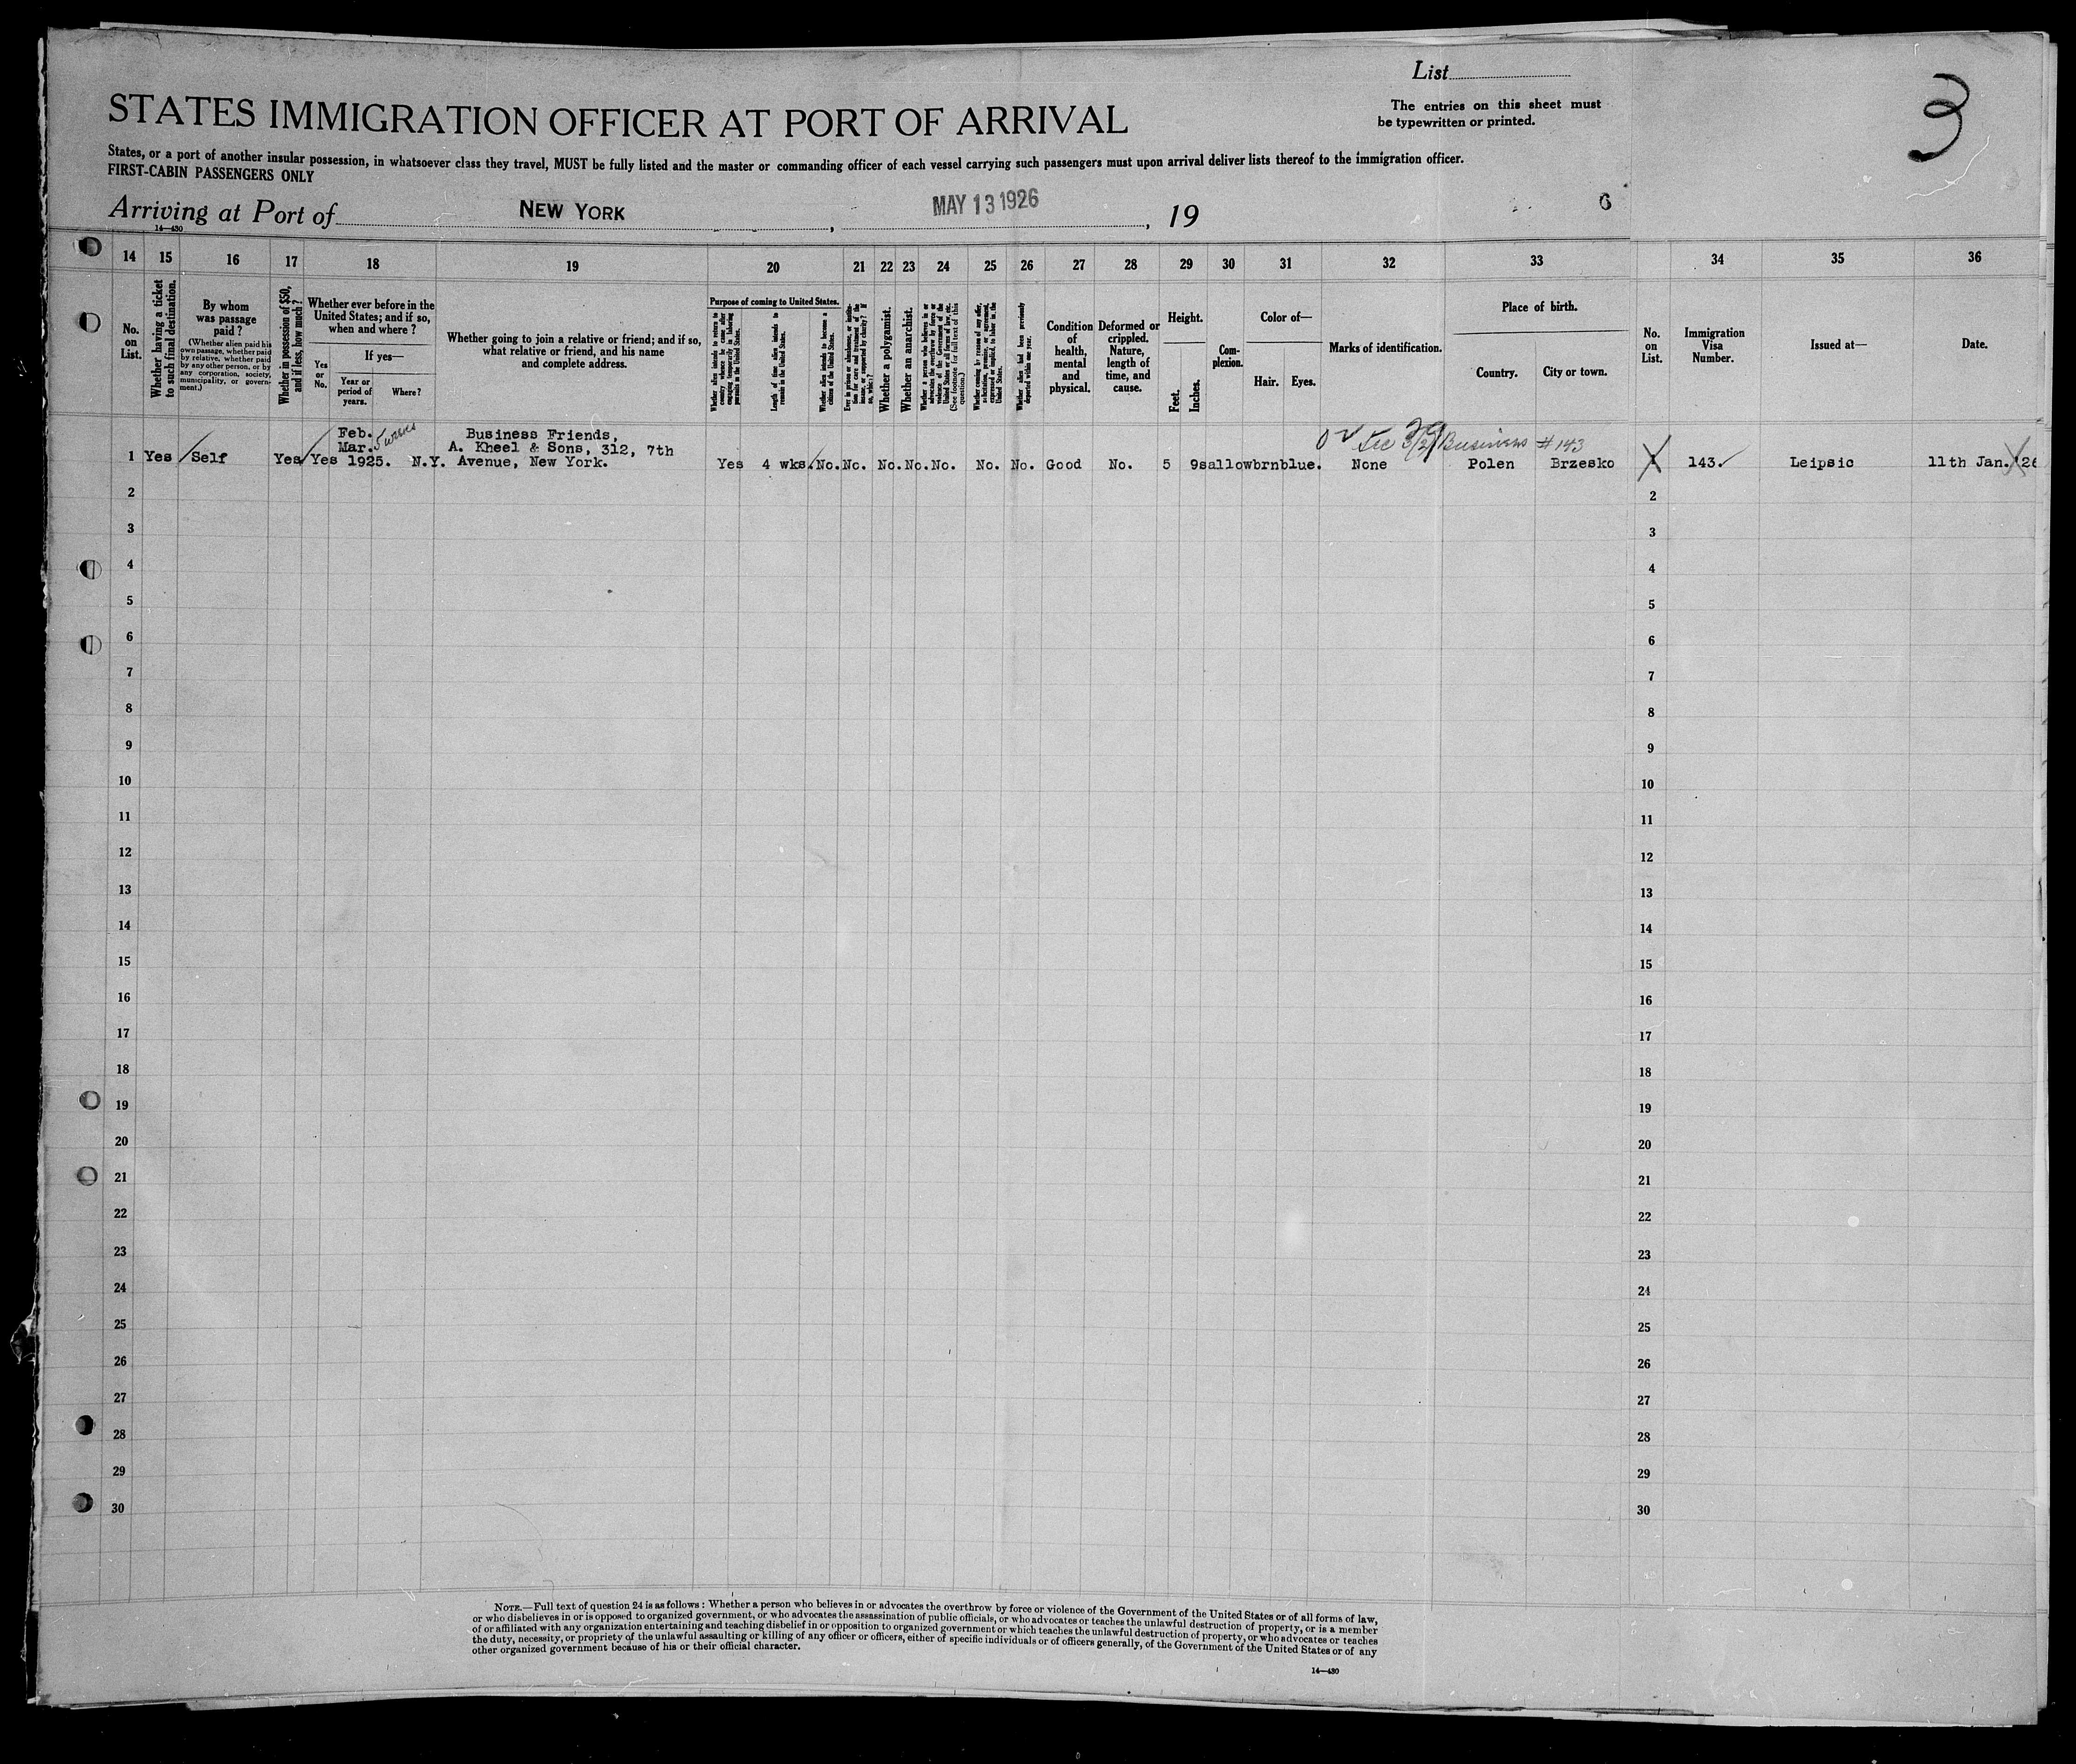 List
3
STATES IMMIGRATION OFFICER AT PORT OF ARRIVAL
The entries on this sheet must
be typewritten or printed.
States, or a port of another insular possession, in whatsoever class they travel, MUST be fully listed and the master or commanding officer of each vessel carrying such passengers must upon arrival deliver lists thereof to the immigration officer.
FIRST-CABIN PASSENGERS ONLY
Arriving at Port of NEW YORK, MAY 13 1926, 19
6
14—430
14 15 16 17 18 19 20 21 22 23 24 25 26 27 28 29 30 31 32 33 34 35 36
No. on List.
Whether having a ticket to such final destination.
By whom was passage paid?
(Whether alien paid his own passage, whether paid by relative, whether paid by any other person, or by any corporation, society, municipality, or government.)
Whether in possession of $50, and if less, how much?
Whether ever before in the United States; and if so, when and where?
Yes or No.
If yes—
Year or period of years.
Where?
Whether going to join a relative or friend; and if so, what relative or friend, and his name and complete address.
Purpose of coming to United States.
Whether alien intends to return to country whence he came after engaging temporarily in laboring pursuits in the United States.
Length of time alien intends to remain in the United States.
Whether alien intends to become a citizen of the United States.
Ever in prison or almshouse, or institution for care and treatment of the insane, or supported by charity? If so, which?
Whether a polygamist.
Whether an anarchist.
Whether a person who believes in or advocates the overthrow by force or violence of the Government of the United States or all forms of law, etc. (See footnote for full text of this question.)
Whether coming by reason of any offer, solicitation, promise, or agreement, expressed or implied, to labor in the United States.
Whether alien had been previously deported within one year.
Condition of health, mental and physical.
Deformed or crippled. Nature, length of time, and cause.
Height.
Feet.
Inches.
Complexion.
Color of—
Hair.
Eyes.
Marks of identification.
Place of birth.
Country.
City or town.
No. on List.
Immigration Visa Number.
Issued at—
Date.
Feb. Business Friends, Sec 3/2 Business #143
Mar. 5 weeks A. Kheel & Sons, 312, 7th
1 Yes Self Yes Yes 1925. N.Y. Avenue, New York. Yes 4 wks. No. No. No. No. No. No. No. Good No. 5 9 sallow brn blue. None Polen Brzesko 143. Leipsic 11th Jan. '26
2 2
3 3
4 4
5 5
6 6
7 7
8 8
9 9
10 10
11 11
12 12
13 13
14 14
15 15
16 16
17 17
18 18
19 19
20 20
21 21
22 22
23 23
24 24
25 25
26 26
27 27
28 28
29 29
30 30
NOTE.—Full text of question 24 is as follows: Whether a person who believes in or advocates the overthrow by force or violence of the Government of the United States or of all forms of law,
or who disbelieves in or is opposed to organized government, or who advocates the assassination of public officials, or who advocates or teaches the unlawful destruction of property, or is a member
of or affiliated with any organization entertaining and teaching disbelief in or opposition to organized government or which teaches the unlawful destruction of property, or who advocates or teaches
the duty, necessity, or propriety of the unlawful assaulting or killing of any officer or officers, either of specific individuals or of officers generally, of the Government of the United States or of any
other organized government because of his or their official character.
14—430